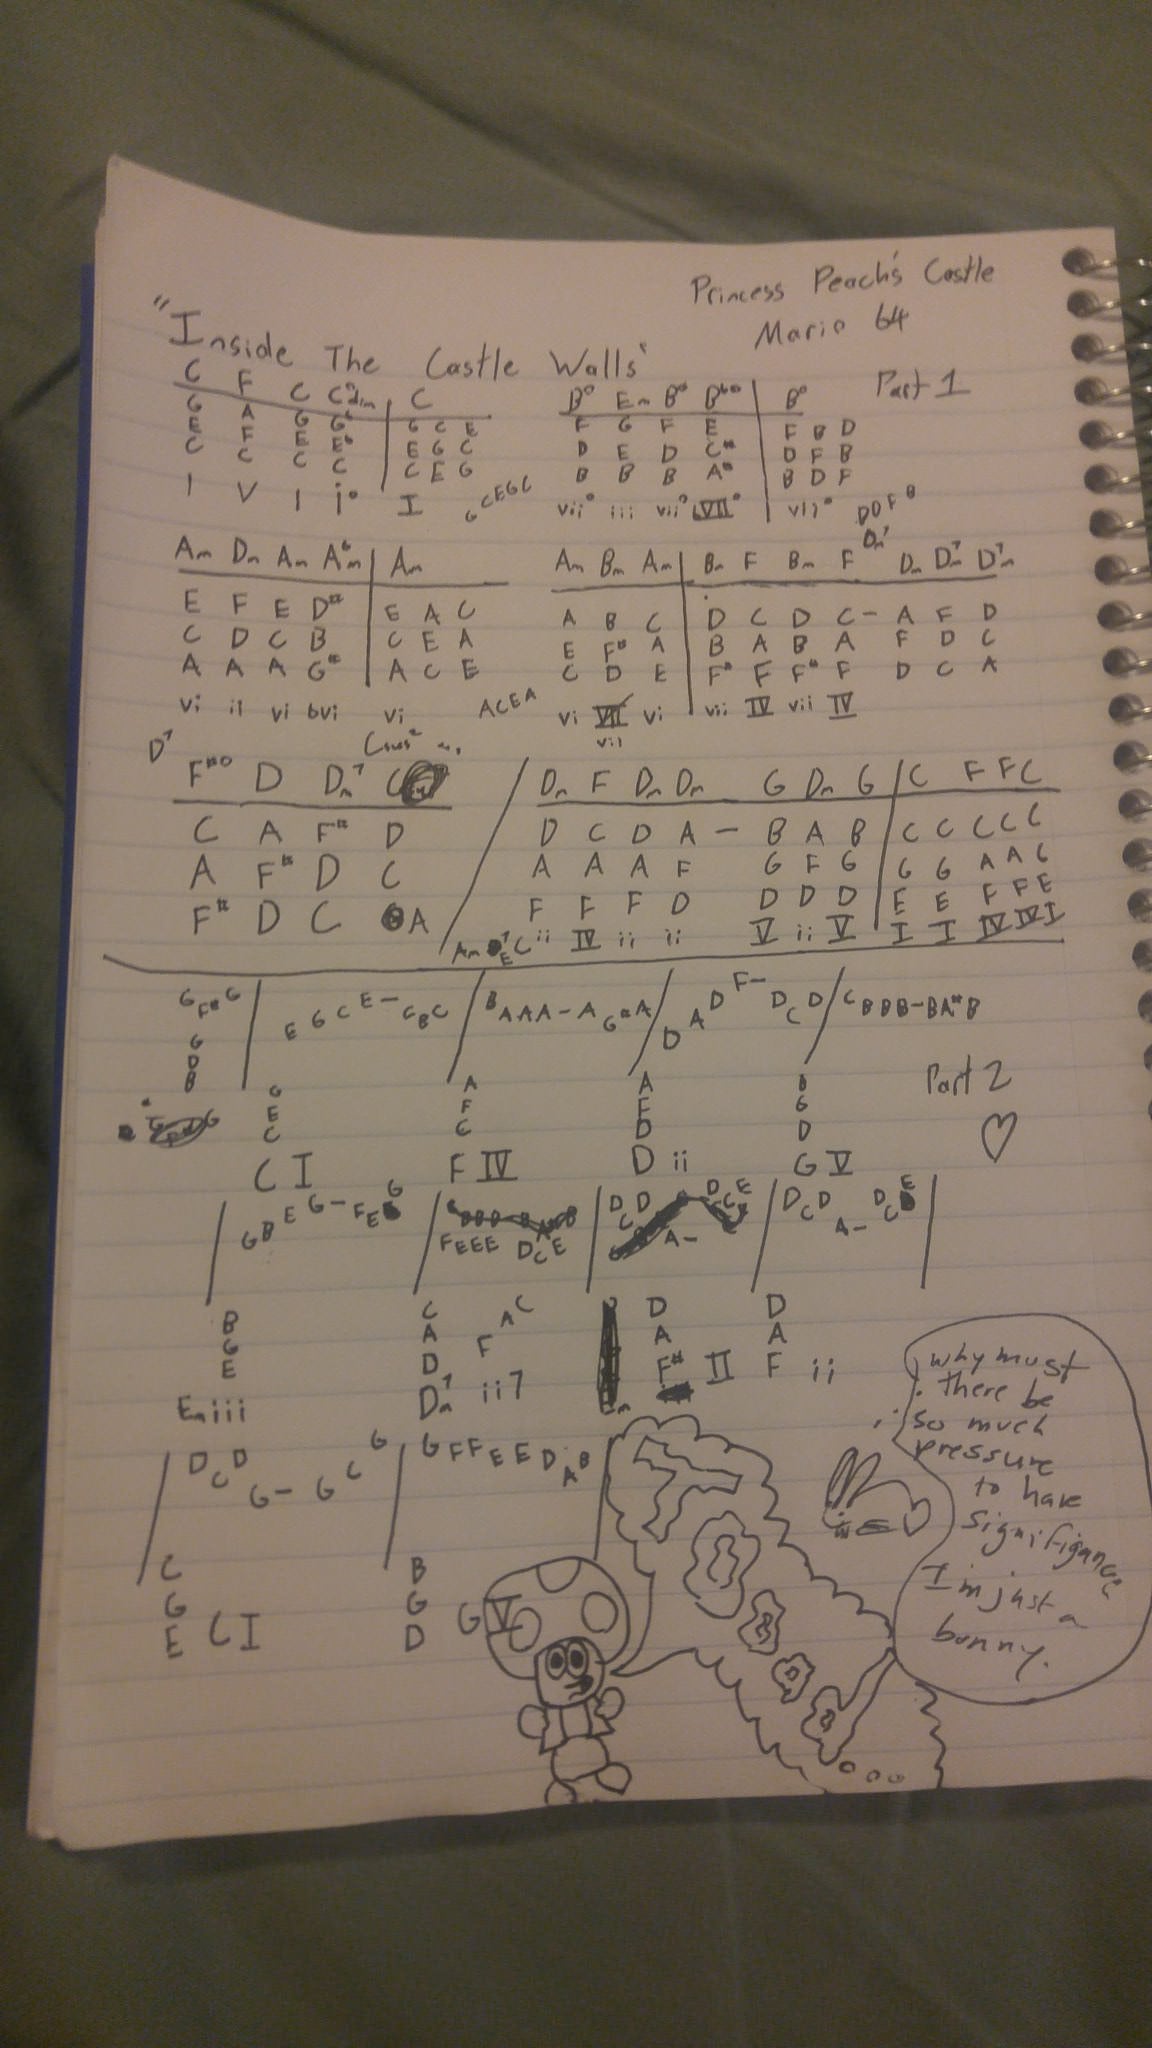 Princess Peach's Castle
Mario 64
"Inside The Castle Walls"
Part 1
C F C C°dim | C
G A G Gb | G C E
E F E Eb | E G C
C C C C | C E G
I V I i° | I G C E G C
B° Em B° Bb° | B°
F G F E | F B D
D E D C# | D F B
B B B A# | B D F
vii° iii vii° VII° | vii° B D F B
Am Dm Am Abm | Am
E F E D# | E A C
C D C B | C E A
A A A G# | A C E
vi ii vi bvi vi A C E A
Am Bm Am | Bm F Bm F Dm7 Dm Dm7 Dm7
A B C | D C D C - A F D
E F# A | B A B A F D C
C D E | F# F F# F D C A
vi VII vi | vii IV vii IV
vii
D7 F#° D Dm7 C
C A F# D
A F# D C
F# D C A
Dm F Dm Dm G Dm G | C F F C
D C D A - B A B | C C C C C
A A A F G F G | G G A A G
F F F D D D D | E E F F E
ii IV ii ii V ii V | I I IV IV I
G F# G | E G C E - C B C / B A A A - A G# A / D A D F - D C D / C B B B - B A# B
G
D
B
G E C
C I
A F C
F IV
A F D
D ii
B G D
G V
Part 2
G B E G - F E
F E E E D C E
D C D A - D C E
D C D A - D C E
B G E
Em iii
C A D F A C
Dm7 ii7
D A F# II
D A F ii
D C D G - G C G
G F F E E D A B
C G E C I
B G D G V
why must
there be
so much
pressure
to have
signifigance
I'm just a
bunny.